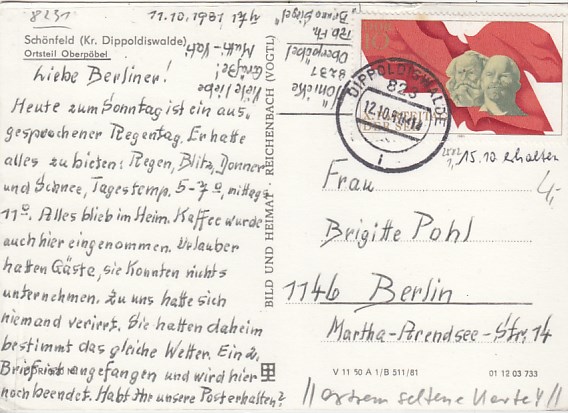 8231
11.10.1981 17h
Schönfeld (Kr. Dippoldiswalde)
Ortsteil Oberpöbel
Liebe Berliner!
Heute zum Sonntag ist ein aus-
gesprochener Regentag. Er hatte
alles zu bieten: Regen, Blitz, Donner
und Schnee, Tagestemp. 5-7°, mittags
11°. Alles blieb im Heim. Kaffee wurde
auch hier eingenommen. Urlauber
hatten Gäste, sie konnten nichts
unternehmen. Zu uns hatte sich
niemand verirrt. Sie hatten daheim
bestimmt das gleiche Wetter. Ein 2.
Brief ist angefangen und wird hier
noch beendet. Habt Ihr unsere Post erhalten?
Viele liebe
Grüße!
8231
Oberpöbel
BILD UND HEIMAT · REICHENBACH (VOGTL)
10
DIPPOLDISWALDE
823
12.10.81
i
15.10. erhalten
4,-
Frau
Brigitte Pohl
1146 Berlin
Martha-Arendsee-Str. 14
V 11 50 A 1/B 511/81
01 12 03 733
!! extrem seltene Karte !!